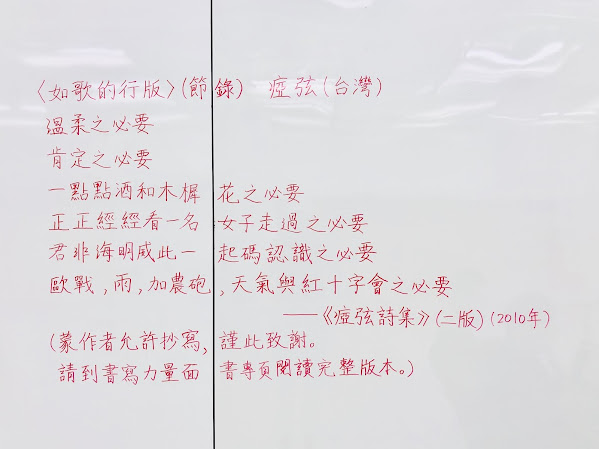 〈如歌的行版〉(節錄) 瘂弦(台灣)
溫柔之必要
肯定之必要
一點點酒和木樨花之必要
正正經經看一名女子走過之必要
君非海明威此一起碼認識之必要
歐戰,雨,加農砲,天氣與紅十字會之必要
——《瘂弦詩集》(二版)(2010年)
(蒙作者允許抄寫,謹此致謝。
請到書寫力量面書專頁閱讀完整版本。)